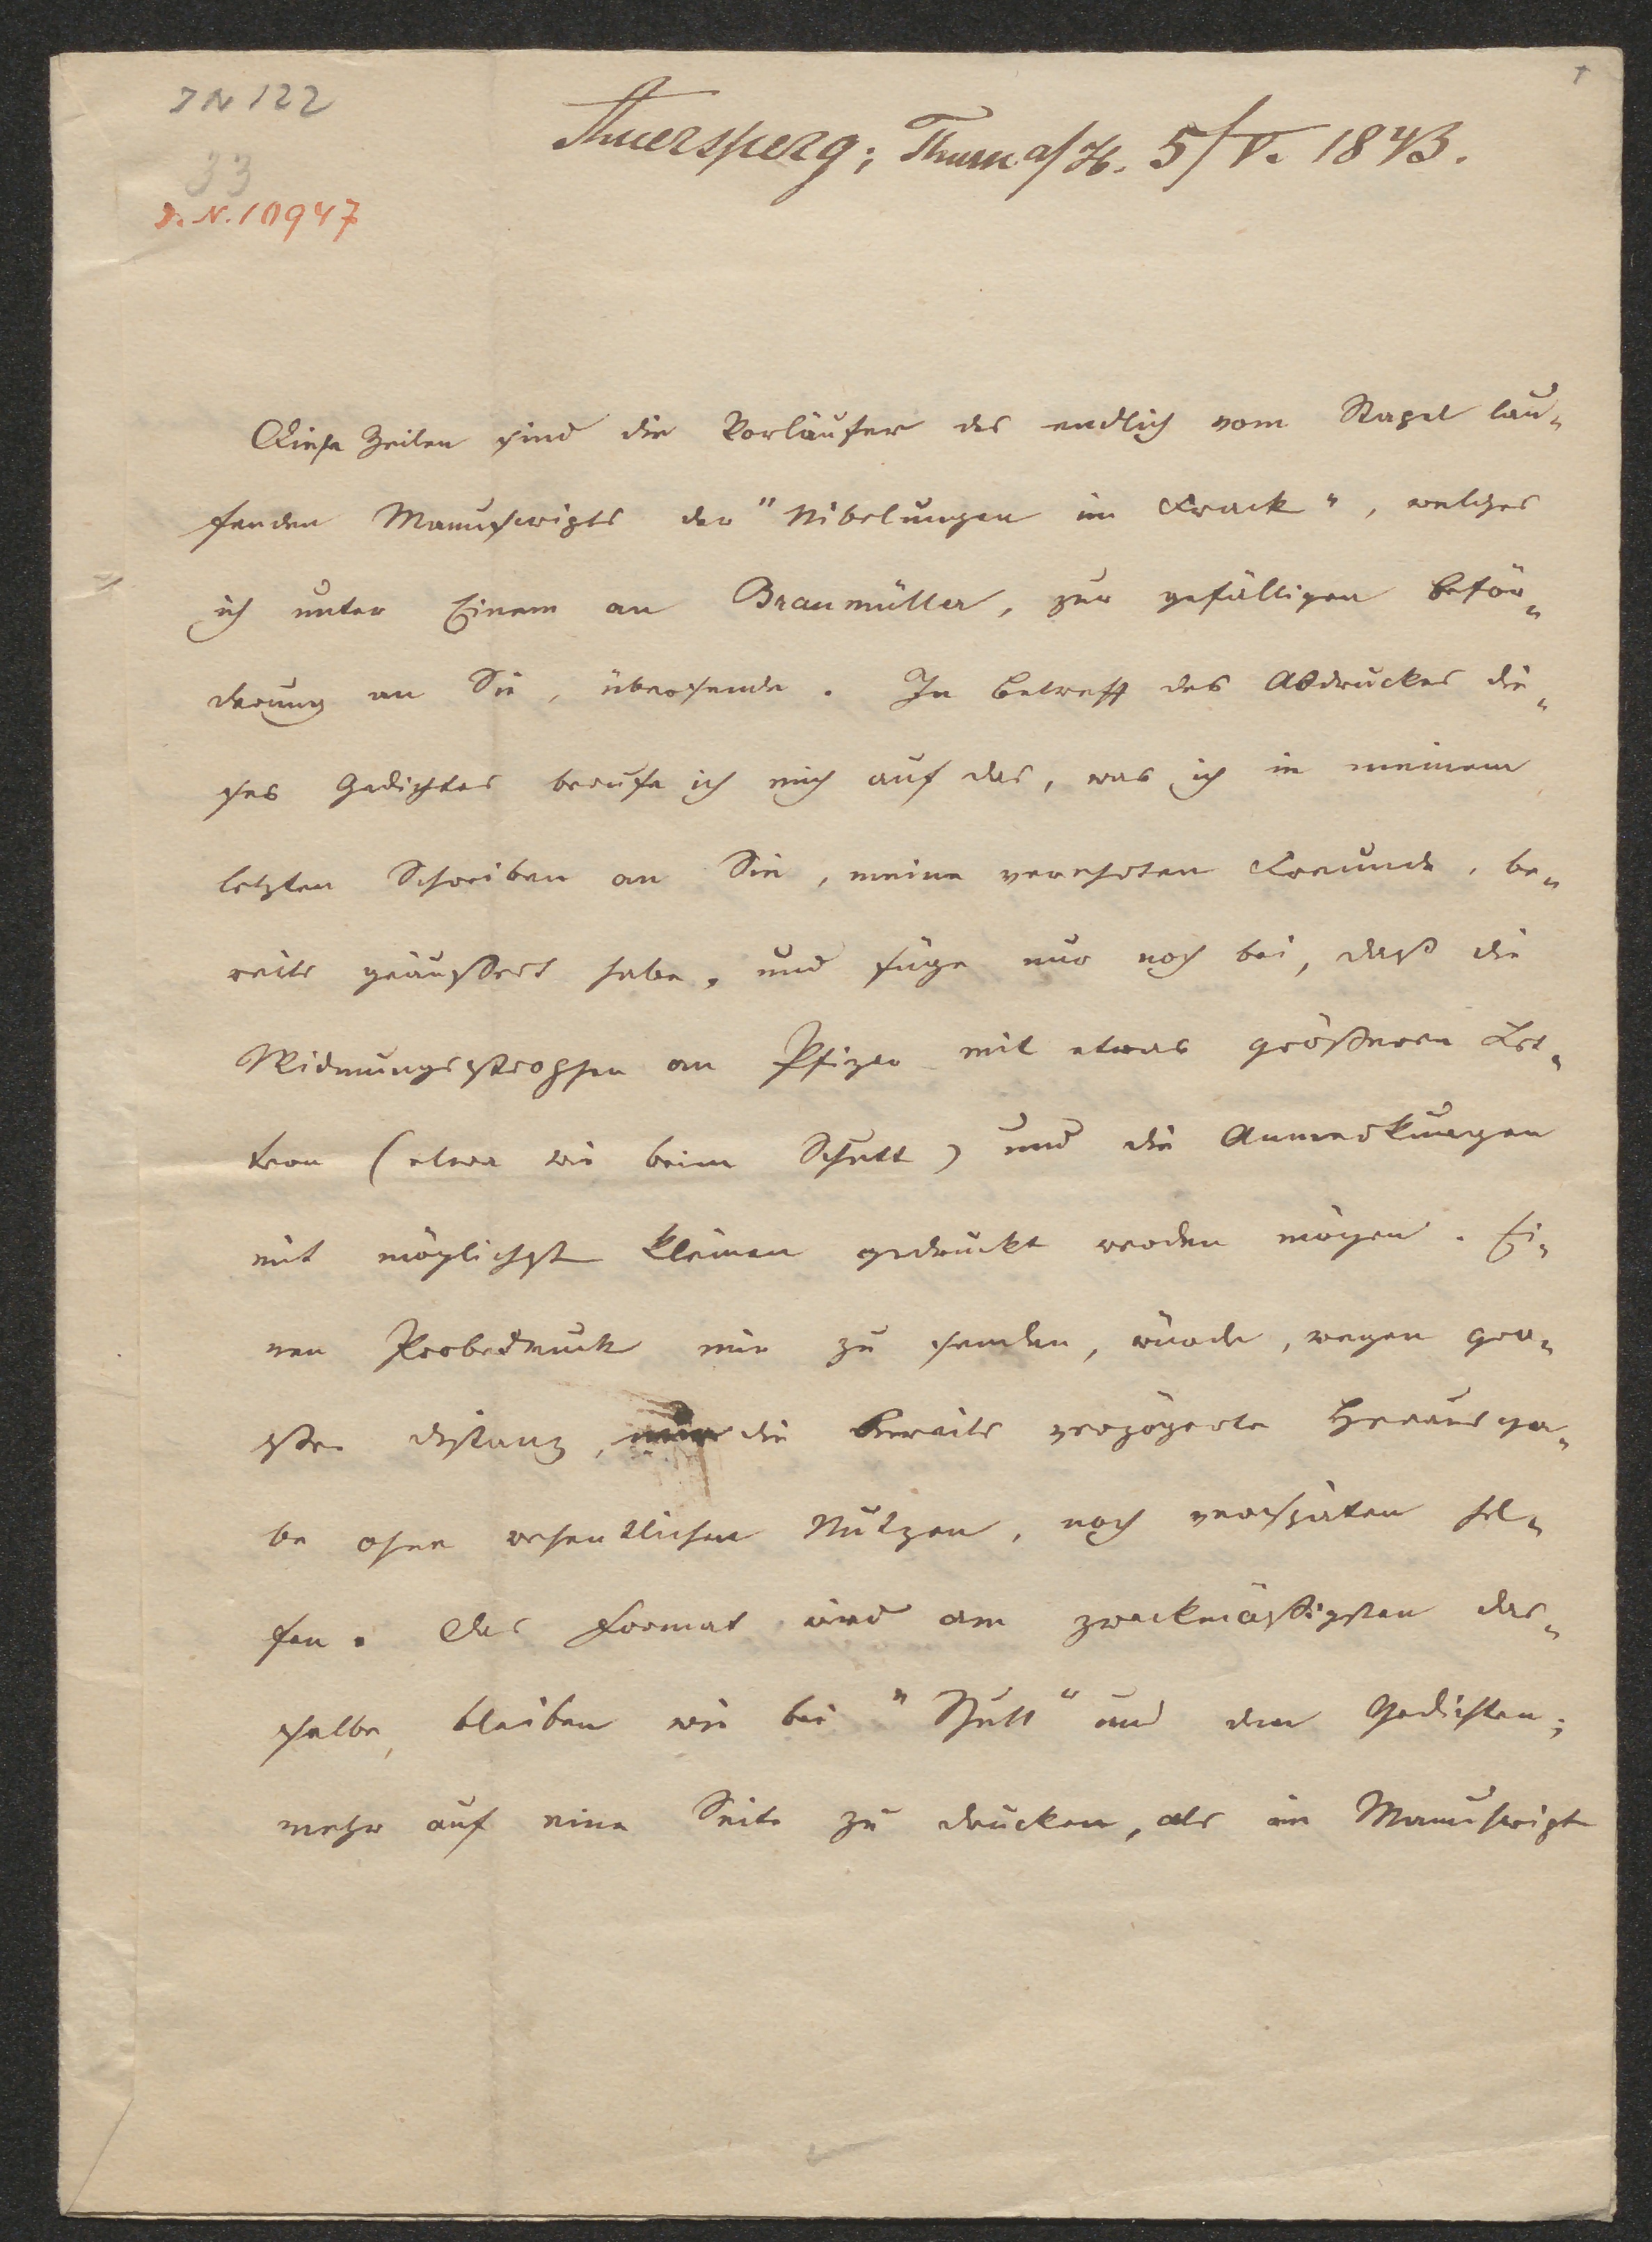 JN 122
33
J. N. 10947
Auersperg; Thurn a/H. 5/V. 1843.
Diese Zeilen sind die Vorläufer des endlich vom Stapel lau-
fenden Manuscripts der "Nibelungen im Frack", welches
ich unter Einem an Braumüller, zur gefälligen Beför-
derung an Sie, übersende. In Betreff des Abdruckes die-
ses Gedichtes berufe ich mich auf das, was ich in meinem
letzten Schreiben an Sie, meine verehrten Freunde, be-
reits geäußert habe, und füge nur noch bei, daß die
Widmungsstrophen an Pfizer mit etwas größeren Let-
tern (etwa wie beim Schutt) und die Anmerkungen
mit möglichst kleinen gedruckt werden mögen. Ei-
nen Probedruck mir zu senden, würde, wegen gro-
ßer Distanz, die bereits verzögerte Herausga-
be ohne wesentlichen Nutzen, noch verspäten hel-
fen. Das Format wird am zweckmäßigsten das-
selbe, bleiben wie bei "Schutt" und den Gedichten;
mehr auf eine Seite zu drucken, als im Manuscripte